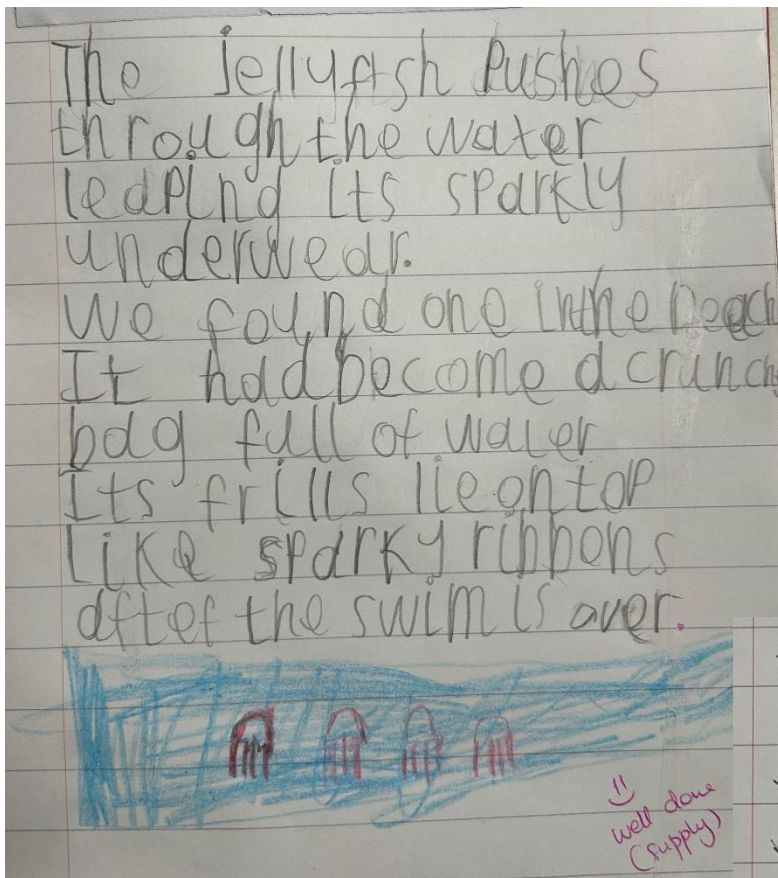 The jellyfish Pushes
through the water
leaping its sparkly
underwear.
We found one in the beach
It had become a crunch
bag full of water
Its frills lie on top
Like sparky ribbons
after the swim is over.
well done
(supply)